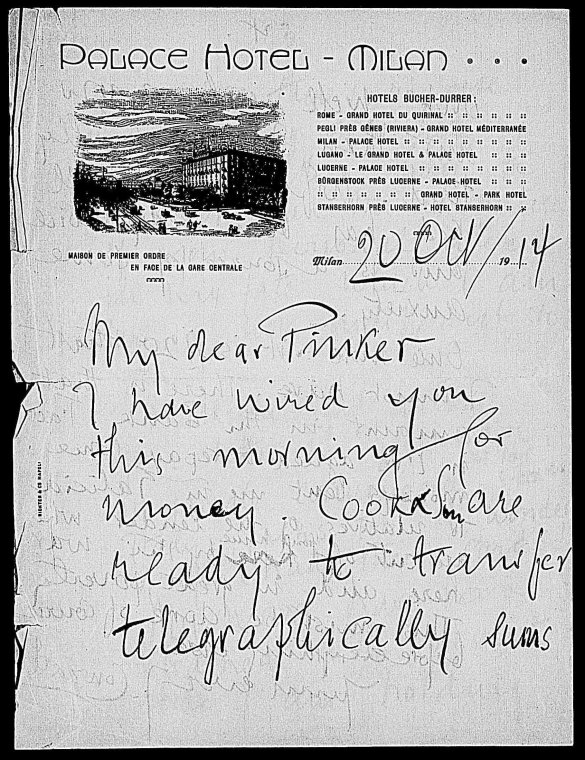 PALACE HOTEL - MILAN . . .
HOTELS BUCHER-DURRER:
ROME - GRAND HOTEL DU QUIRINAL :: :: :: :: :: ::
PEGLI PRÈS GÊNES (RIVIERA) - GRAND HOTEL MÉDITERRANÉE
MILAN - PALACE HOTEL :: :: :: :: :: :: ::
LUGANO - LE GRAND HOTEL & PALACE HOTEL :: :: ::
LUCERNE - PALACE HOTEL :: :: :: :: :: :: ::
BÜRGENSTOCK PRÈS LUCERNE - PALACE HOTEL :: :: ::
:: :: :: :: :: :: :: GRAND HOTEL - PARK HOTEL
STANSERHORN PRÈS LUCERNE - HOTEL STANSERHORN :: ::
MAISON DE PREMIER ORDRE
EN FACE DE LA GARE CENTRALE
Milan 20 Oct/ 1914
My dear Pinker
I have wired you
this morning for
money. Cook & Son are
ready to transfer
telegraphically sums
RICHTER & Co NAPOLI